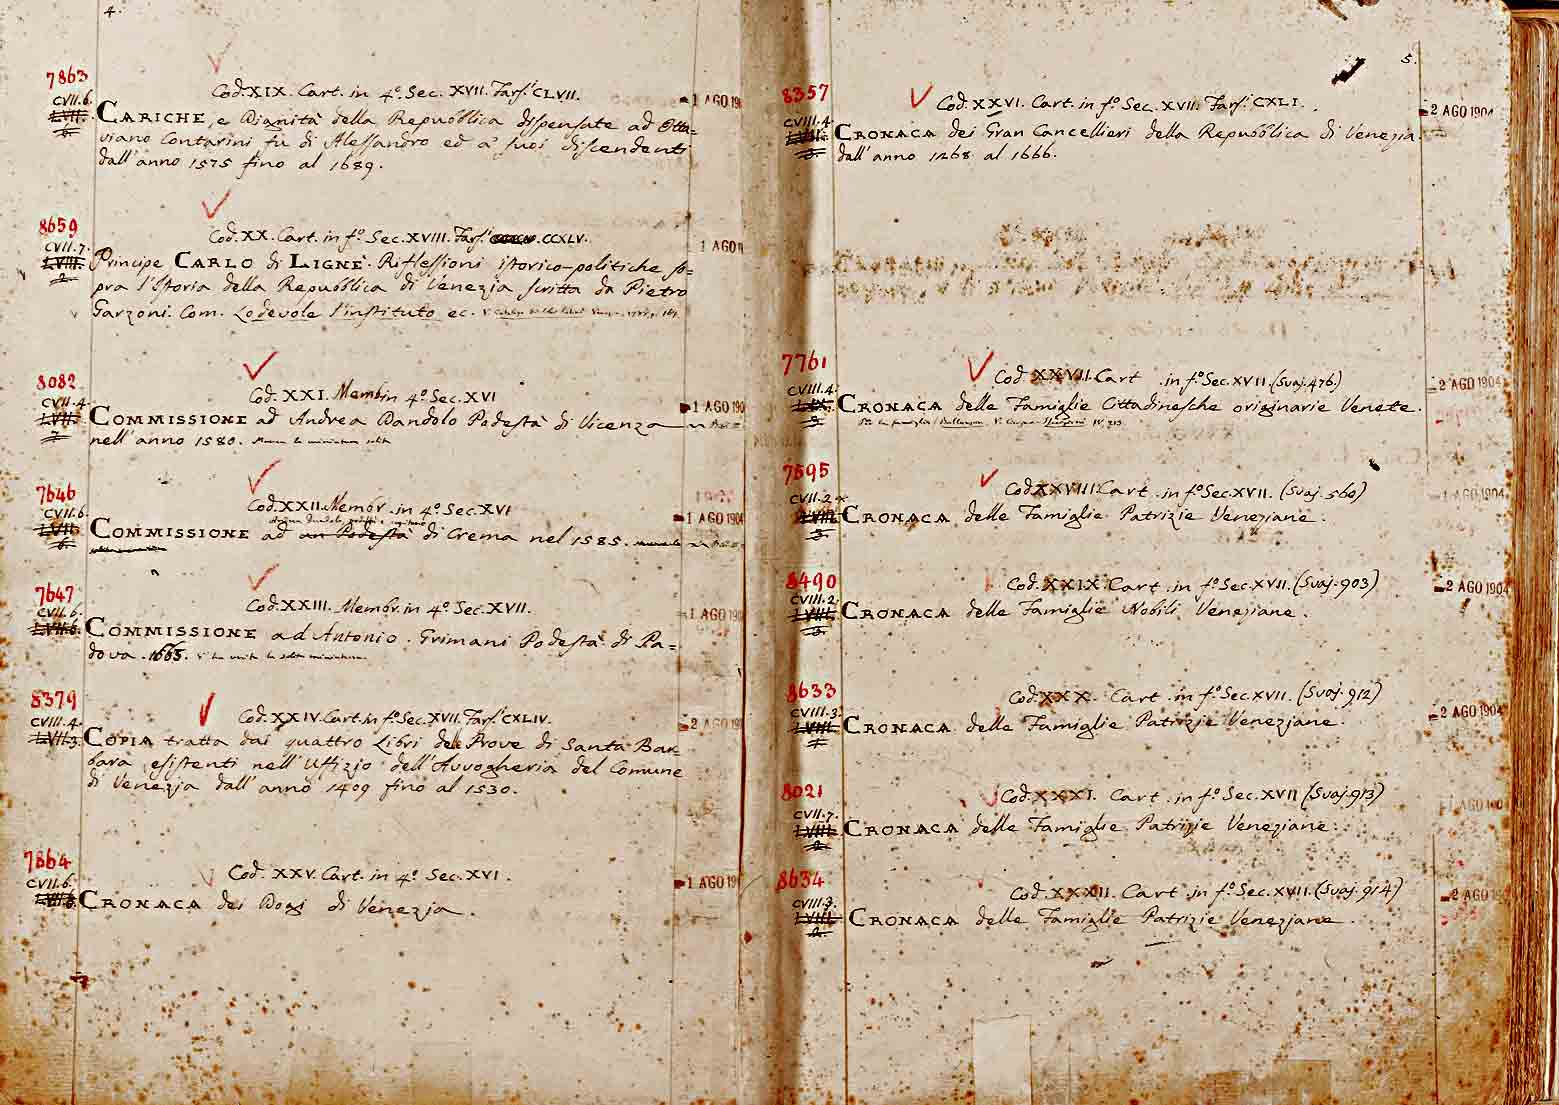 4.
7863
Cod. XIX. Cart. in 4º. Sec. XVII. Fars. CLVII.
1 AGO 190
CVII.6.
CARICHE, e Dignità della Repubblica dispensate ad Otta=
viano Contarini fu di Alessandro ed a' suoi discendenti
dall'anno 1575 fino al 1689.
8659
Cod. XX. Cart. in fº. Sec. XVIII. Fars. CCXLV.
1 AGO
CVII.7.
LVIII.
2.
Principe CARLO di LIGNE. Riflessioni istorico-politiche so=
pra l'Istoria della Repubblica di Venezia scritta da Pietro
Garzoni. Com. Lodevole l'instituto ec.
8082
Cod. XXI. Memb. in 4º. Sec. XVI
1 AGO 190
CVII.4.
LVII.
COMMISSIONE ad Andrea Dandolo Podestà di Vicenza
nell'anno 1580. Manca la miniatura solita
7646
Cod. XXII. Membr. in 4º. Sec. XVI
1 AGO 1904
CVII.6.
LVII.
6.
COMMISSIONE ad un Podestà di Crema nel 1585.
7647
Cod. XXIII. Membr. in 4º. Sec. XVII.
1 AGO 190
CVII.6.
LVII.6.
COMMISSIONE ad Antonio Grimani Podestà di Pa=
dova. 1663. v'ha unita la solita miniatura
8379
Cod. XXIV. Cart. in fº. Sec. XVII. Fars. CXLIV.
2 AGO 19
CVIII.4.
LVIII.3.
COPIA tratta dai quattro Libri delle Prove di Santa Bar=
bara esistenti nell'Uffizio dell'Avvogheria del Comune
di Venezia dall'anno 1409 fino al 1530.
7864
Cod. XXV. Cart. in 4º. Sec. XVI.
1 AGO 19
CVII.6.
CRONACA dei Dogi di Venezia.
5.
8357
Cod. XXVI. Cart. in fº. Sec. XVII. Fars. CXLI.
2 AGO 1904
CVIII.4.
CRONACA dei Gran Cancellieri della Repubblica di Venezia
dall'anno 1268 al 1666.
7761
Cod. XXVII. Cart. in fº. Sec. XVII. (Svaj. 476.)
2 AGO 1904
CVIII.4.
LIX.
CRONACA delle Famiglie Cittadinesche originarie Venete.
7595
Cod. XXVIII. Cart. in fº. Sec. XVII. (Svaj. 560)
1 AGO 1904
CVII.2
LVIII.
3.
CRONACA delle Famiglie Patrizie Veneziane.
8490
Cod. XXIX. Cart. in fº. Sec. XVII. (Svaj. 903)
2 AGO 1904
CVIII.2.
LVIII.
3.
CRONACA delle Famiglie Nobili Veneziane.
8633
Cod. XXX. Cart. in fº. Sec. XVII. (Svaj. 912)
2 AGO 1904
CVIII.3.
LVIII.
CRONACA delle Famiglie Patrizie Veneziane.
8021
Cod. XXXI. Cart. in fº. Sec. XVII (Svaj. 913)
1 AGO
CVII.7.
LVIII.
2.
CRONACA delle Famiglie Patrizie Veneziane.
8634
Cod. XXXII. Cart. in fº. Sec. XVII. (Svaj. 914)
2 AGO 19
CVIII.3.
LVIII.
2.
CRONACA delle Famiglie Patrizie Veneziane.